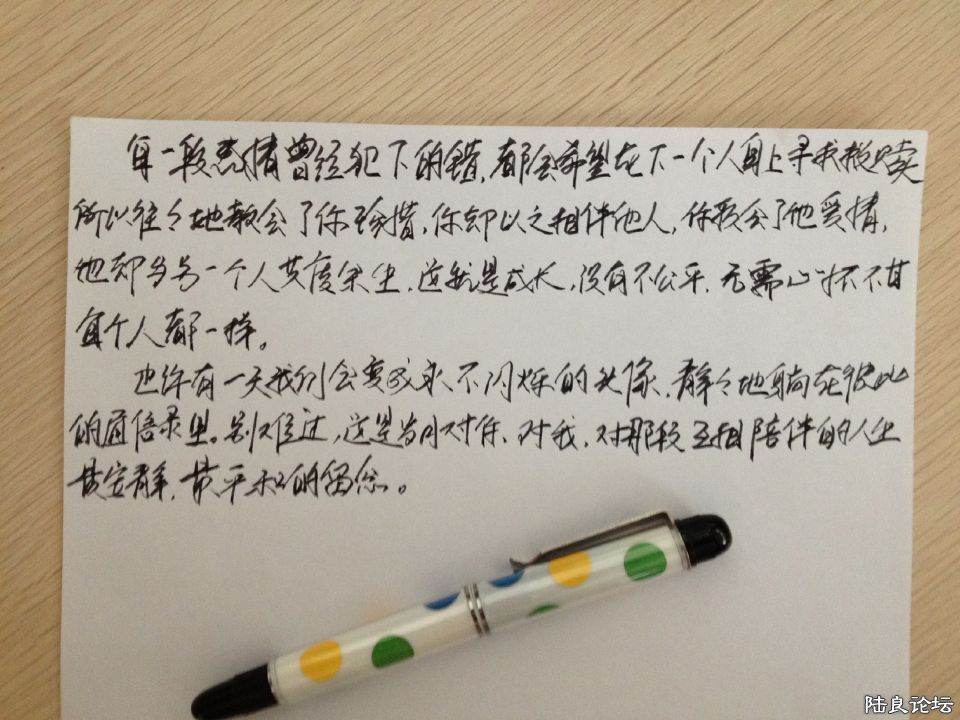 每一段感情曾经犯下的错,都会希望在下一个人身上寻找救赎
所以往々她教会了你珍惜,你却以之相伴他人,你教会了他爱情,
他却与另一个人共度余生,这就是成长,没有不公平,无需心怀不甘
每个人都一样。
也许有一天我们会变成永不闪烁的头像,静々地躺在彼此
的通信录里。别难过,这是岁月对你、对我、对那段互相陪伴的人生
最安静,最平和的留念。
陆良论坛